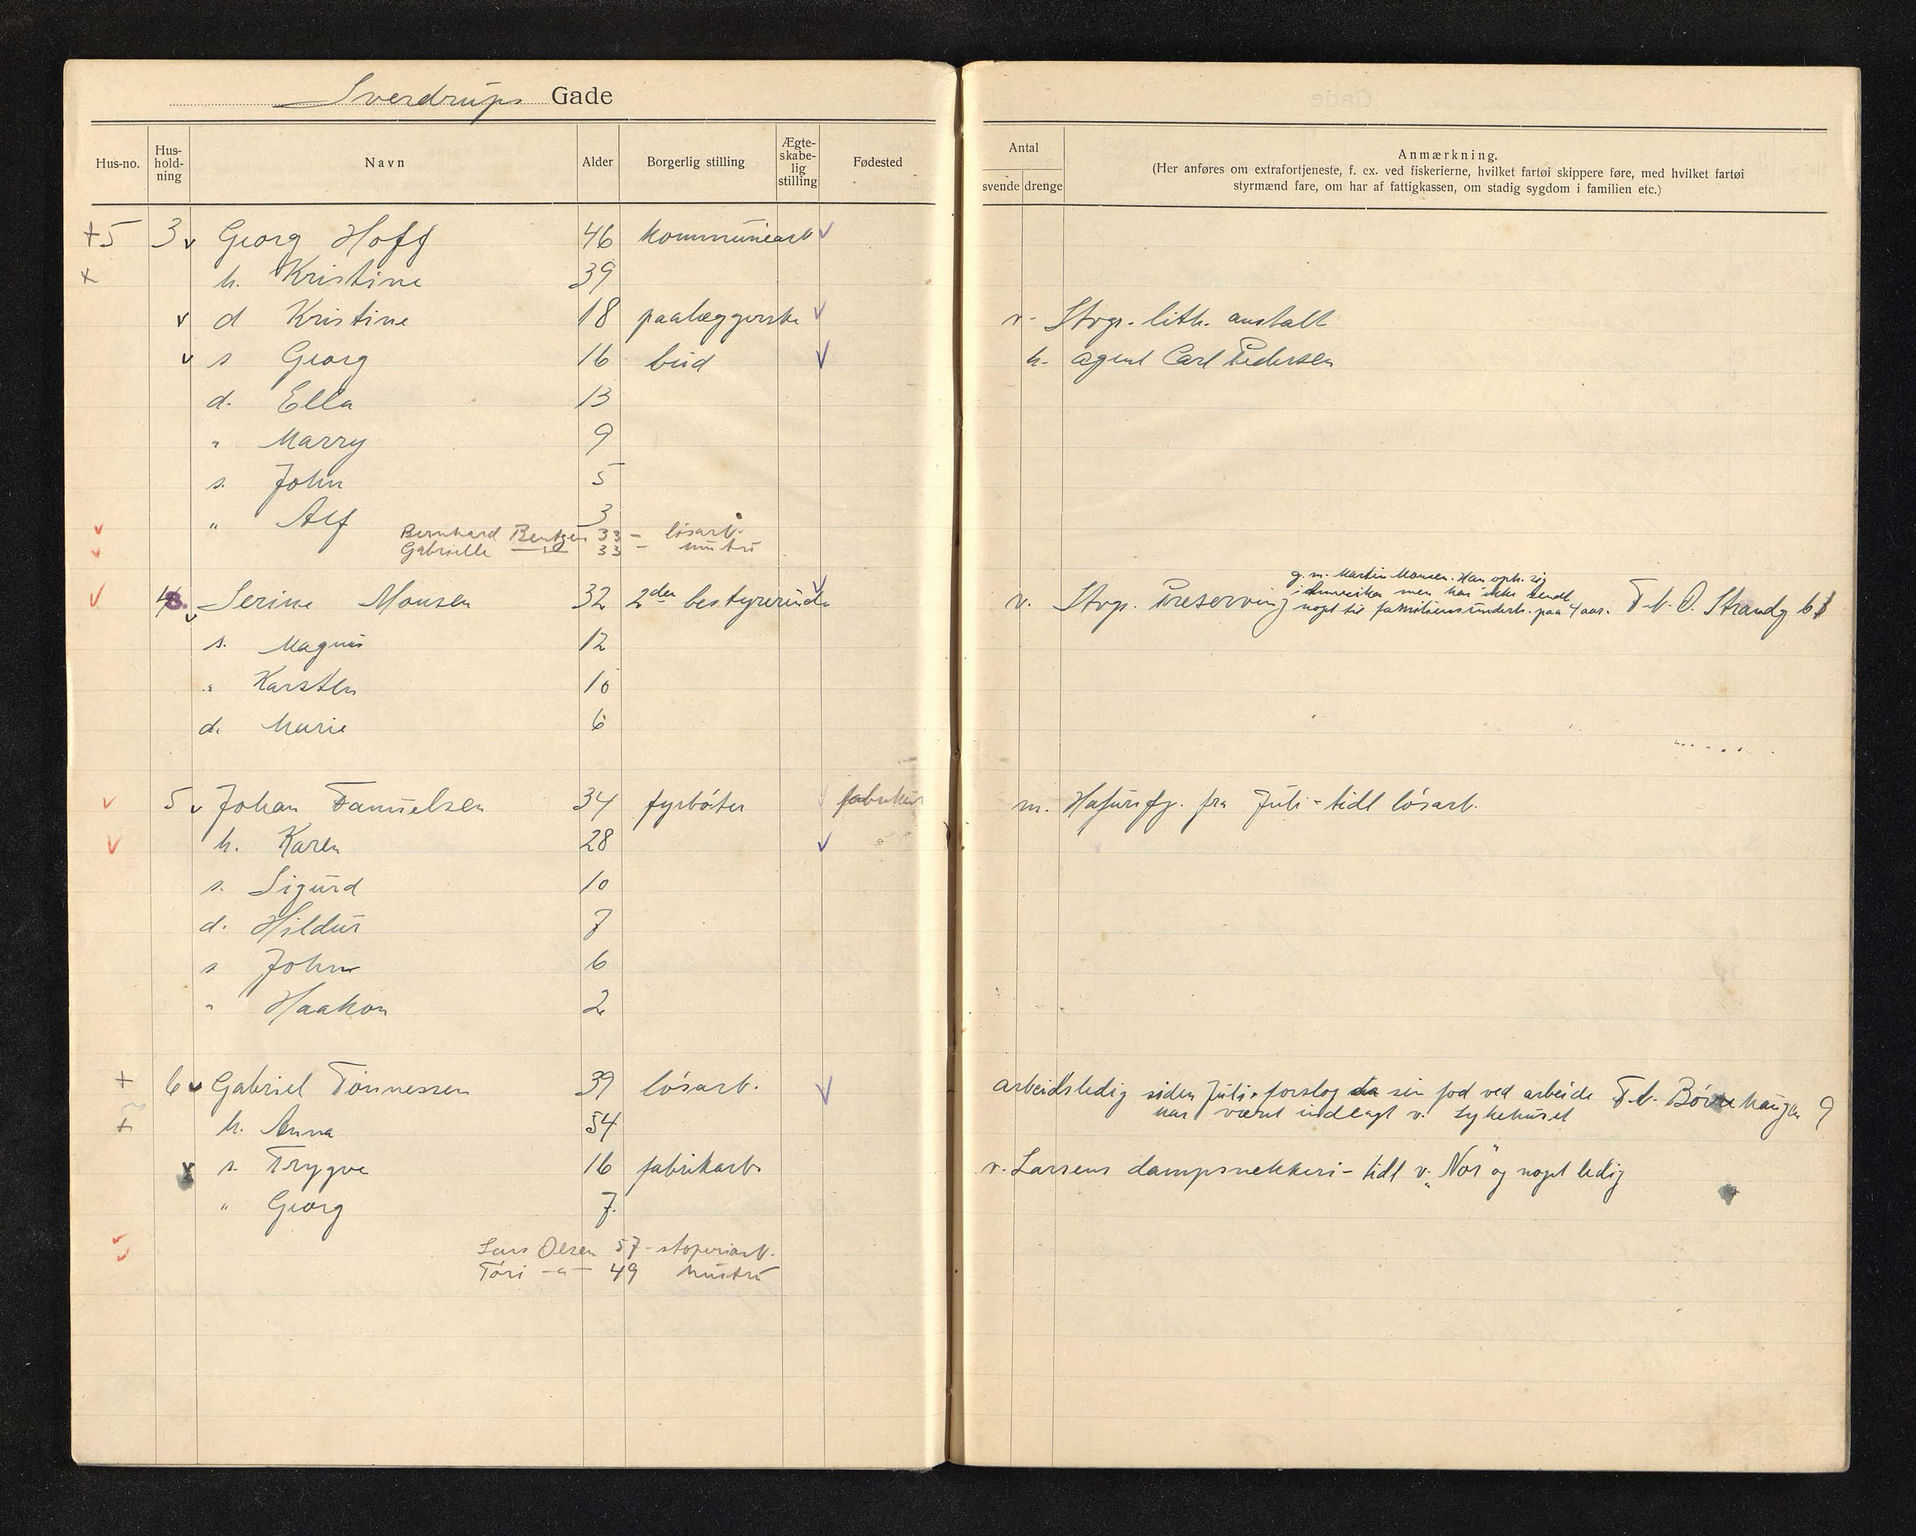 Sverdrups Gade
Hus-no. Hus-hold-ning Navn Alder Borgerlig stilling Ægte-skabe-lig stilling Fødested
Antal svende drenge
Anmærkning.
(Her anføres om extrafortjeneste, f. ex. ved fiskerierne, hvilket fartøi skippere føre, med hvilket fartøi
styrmænd fare, om har af fattigkassen, om stadig sygdom i familien etc.)
+5 3 v Georg Hoff 46 kommunearb v
x h. Kristine 39
v d Kristine 18 paalæggerske v v. Stvgr. lith. anstalt
v s Georg 16 bud v h. agent Carl Pedersen
d. Ella 13
" Marry 9
s. John 5
" Alf 3
v Bernhard Bentzen 33 - løsarb.
v Gabrielle —"— 33 - hustru
v 4 v Serine Monsen 32 2den bestyrerinde v v. Stvgr. Preserving
g. m. Martin Monsen. Han oph. sig
i Amerika men har ikke sendt
noget til familiens underh. paa 4 aar. T.h. O. Strandg 61
s. Magnus 12
" Karsten 10
d. Marie 6
v 5 v Johan Samuelsen 34 fyrbøter m. Hafursfj. fra Juli - tidl løsarb.
v h. Karen 28 v
s. Sigurd 10
d. Hildur 7
s John 6
" Haakon 2
+ 6 v Gabriel Tønnessen 39 løsarb. v arbeidsledig siden Juli, forslog da sin fod ved arbeide T.h.
har været indlagt v. sykehuset
+ h. Anna 54
x s. Trygve 16 fabrikarb v. Larsens dampsnekkeri - tidl v. "Nor" og noget ledig
" Georg 7.
v Lars Olsen 57 - stoperiarb.
v Tøri —"— 49 hustru